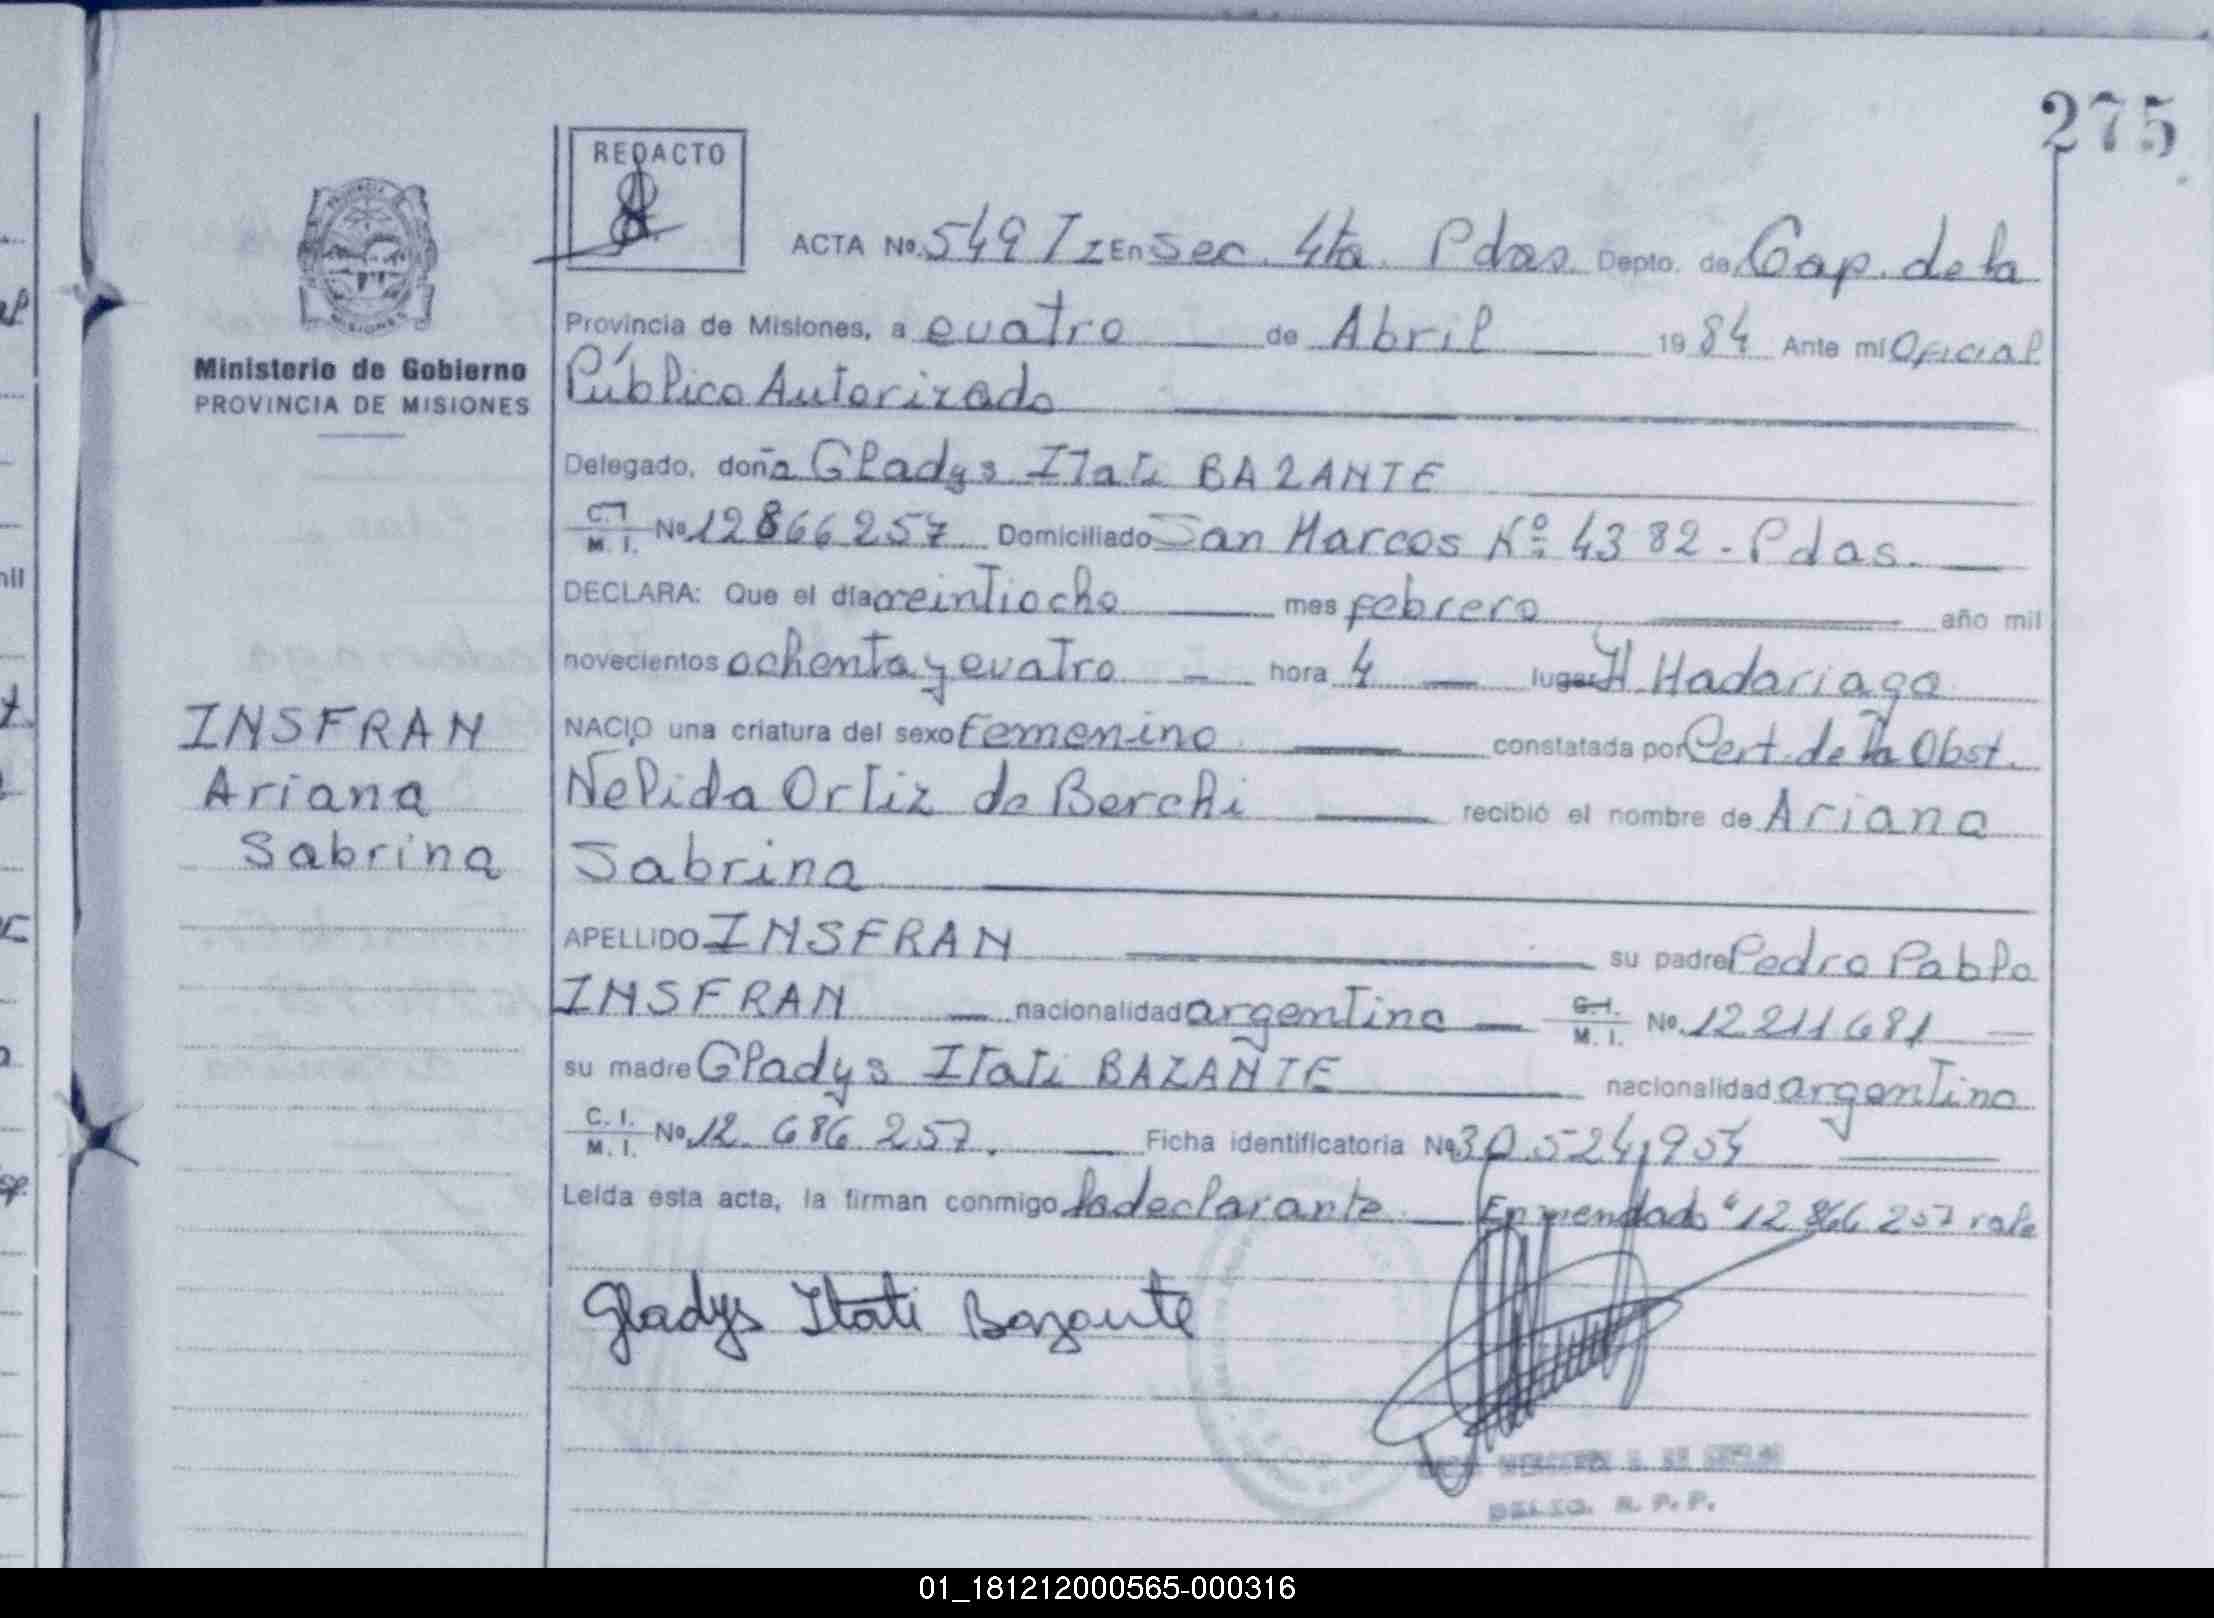 275
REDACTO
ACTA No. 549 T I En Sec. 4ta. Pdas. Depto. de Cap. de la
Provincia de Misiones, a cuatro de Abril 1984 Ante mi Oficial
Ministerio de Gobierno
PROVINCIA DE MISIONES
Público Autorizado
Delegado, doña Gladys Itati BAZANTE
C. I. M. I. No. 12866257 Domiciliado San Marcos Nº 4382 - Pdas.
DECLARA: Que el día veintiocho mes febrero año mil
novecientos ochenta y cuatro hora 4 lugar H Madariaga
INSFRAN
Ariana
Sabrina
NACIO una criatura del sexo femenino constatada por Cert. de la Obst.
Nelida Ortiz de Berchi recibió el nombre de Ariana
Sabrina
APELLIDO INSFRAN su padre Pedro Pablo
INSFRAN nacionalidad argentino C. I. M. I. No. 12211681
su madre Gladys Itati BAZANTE nacionalidad argentina
C. I. M. I. No. 12 686 257. Ficha identificatoria No. 30.524.954
Leída esta acta, la firman conmigo la declarante Enmendado "12866257 vale
Gladys Itati Bazante
R. P. P.
01_181212000565-000316